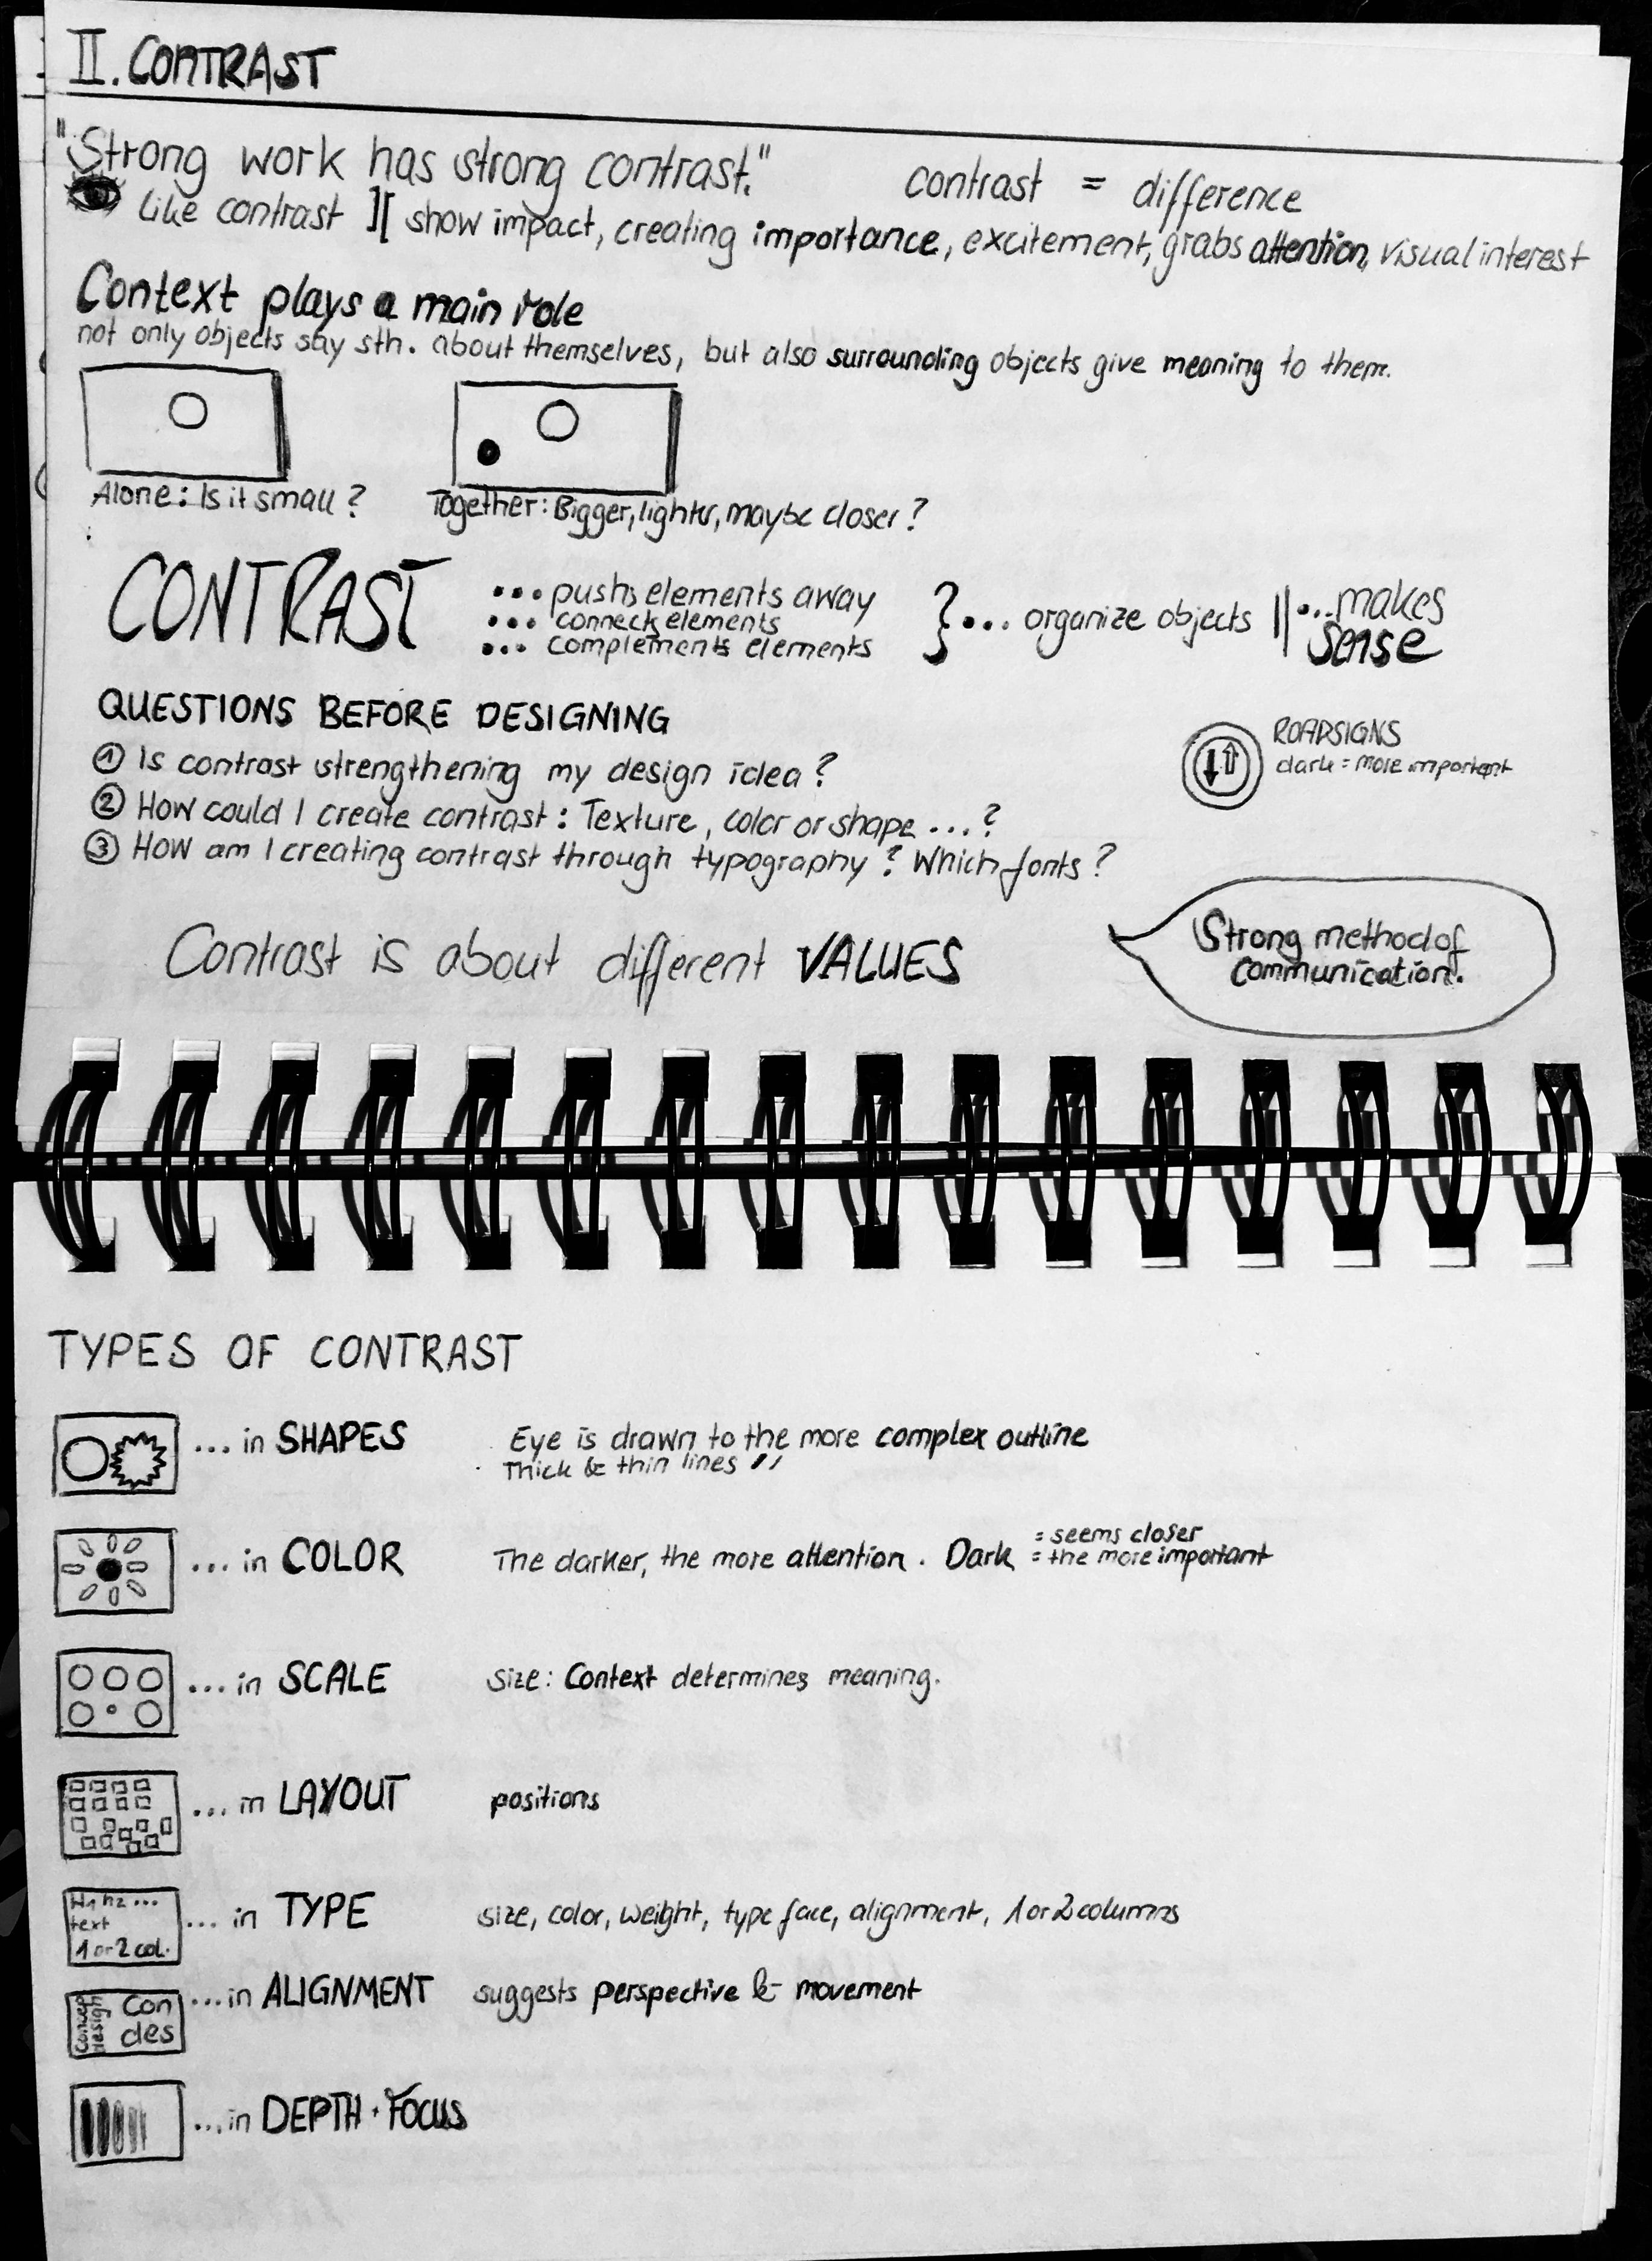 II. CONTRAST
"Strong work has strong contrast."
contrast = difference
like contrast ][ show impact, creating importance, excitement, grabs attention, visual interest
Context plays a main role
not only objects say sth. about themselves, but also surrounding objects give meaning to them.
Alone: Is it small?
Together: Bigger, lighter, maybe closer?
CONTRAST
... pushs elements away
... connects elements
... complements elements
}... organize objects ||
...makes
sense
QUESTIONS BEFORE DESIGNING
① Is contrast strengthening my design idea?
② How could I create contrast: Texture, color or shape ...?
③ How am I creating contrast through typography? Which fonts?
ROADSIGNS
dark = more important
Contrast is about different VALUES
Strong method of
communication.
TYPES OF CONTRAST
... in SHAPES
Eye is drawn to the more complex outline
Thick & thin lines
... in COLOR
The darker, the more attention. Dark
= seems closer
= the more important
... in SCALE
size: Context determines meaning.
... in LAYOUT
positions
H1 h2 ...
text
1 or 2 col.
... in TYPE
size, color, weight, type face, alignment, 1 or 2 columns
Concept
design
Con
des
... in ALIGNMENT
suggests perspective & movement
... in DEPTH · FOCUS